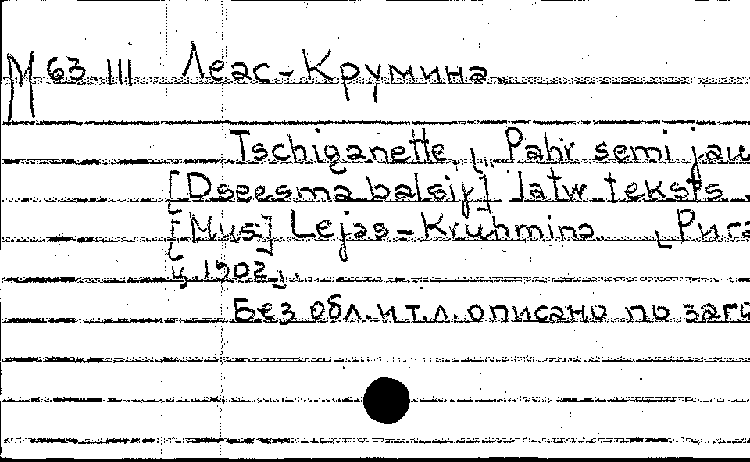 М 63.III Леас-Крумина
Tschiganette, „Pahr semi jau
[Dseesma balsij] latw teksts
[Mus] Lejas-Kruhmina. [Рига
1902].
Без обл. и т.л. описано по заго